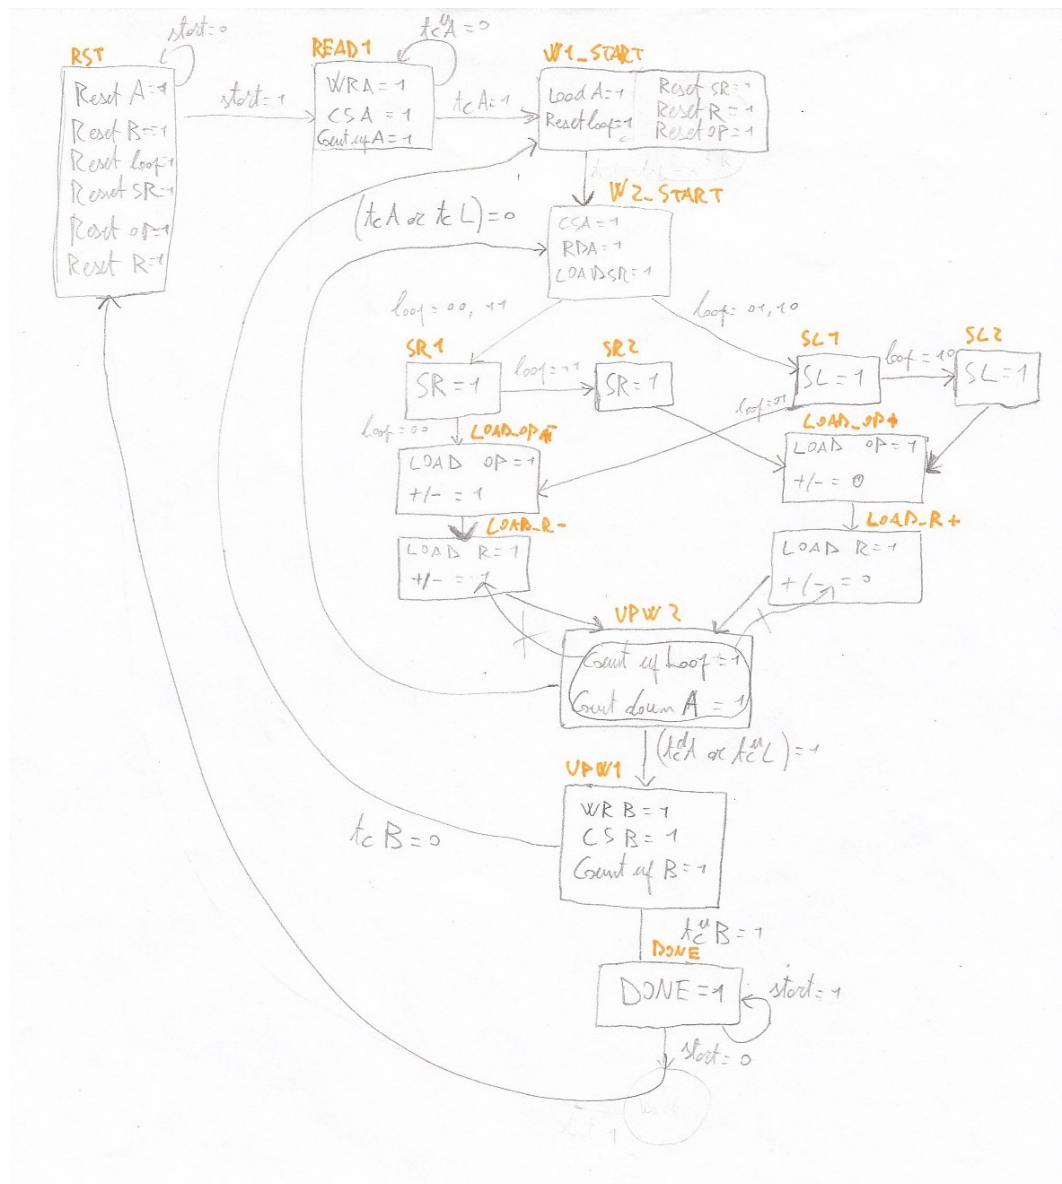 RST
start=0
Reset A=1
Reset B=1
Reset loop=1
Reset SR=1
Reset OP=1
Reset R=1
start=1
READ1
tcᵘA=0
WRA=1
CSA=1
Count up A=1
tcA=1
W1_START
Load A=1
Reset loop=1
Reset SR=1
Reset R=1
Reset OP=1
(tcA or tcL)=0
W2_START
CSA=1
RDA=1
LOADSR=1
loop=00, 11
loop=01,10
SR1
SR=1
loop=11
SR2
SR=1
SL1
SL=1
loop=10
SL2
SL=1
loop=00
loop=01
LOAD_OP-
LOAD OP=1
+/-=1
LOAD_OP+
LOAD OP=1
+/-=0
LOAD_R-
LOAD R=1
+/-=1
LOAD_R+
LOAD R=1
+/-=0
UPW2
Count up Loop=1
Count down A=1
(tcᵈA or tcᵘL)=1
UPW1
WR B=1
CS B=1
Count up B=1
tcB=0
tcᵘB=1
DONE
DONE=1
start=1
start=0